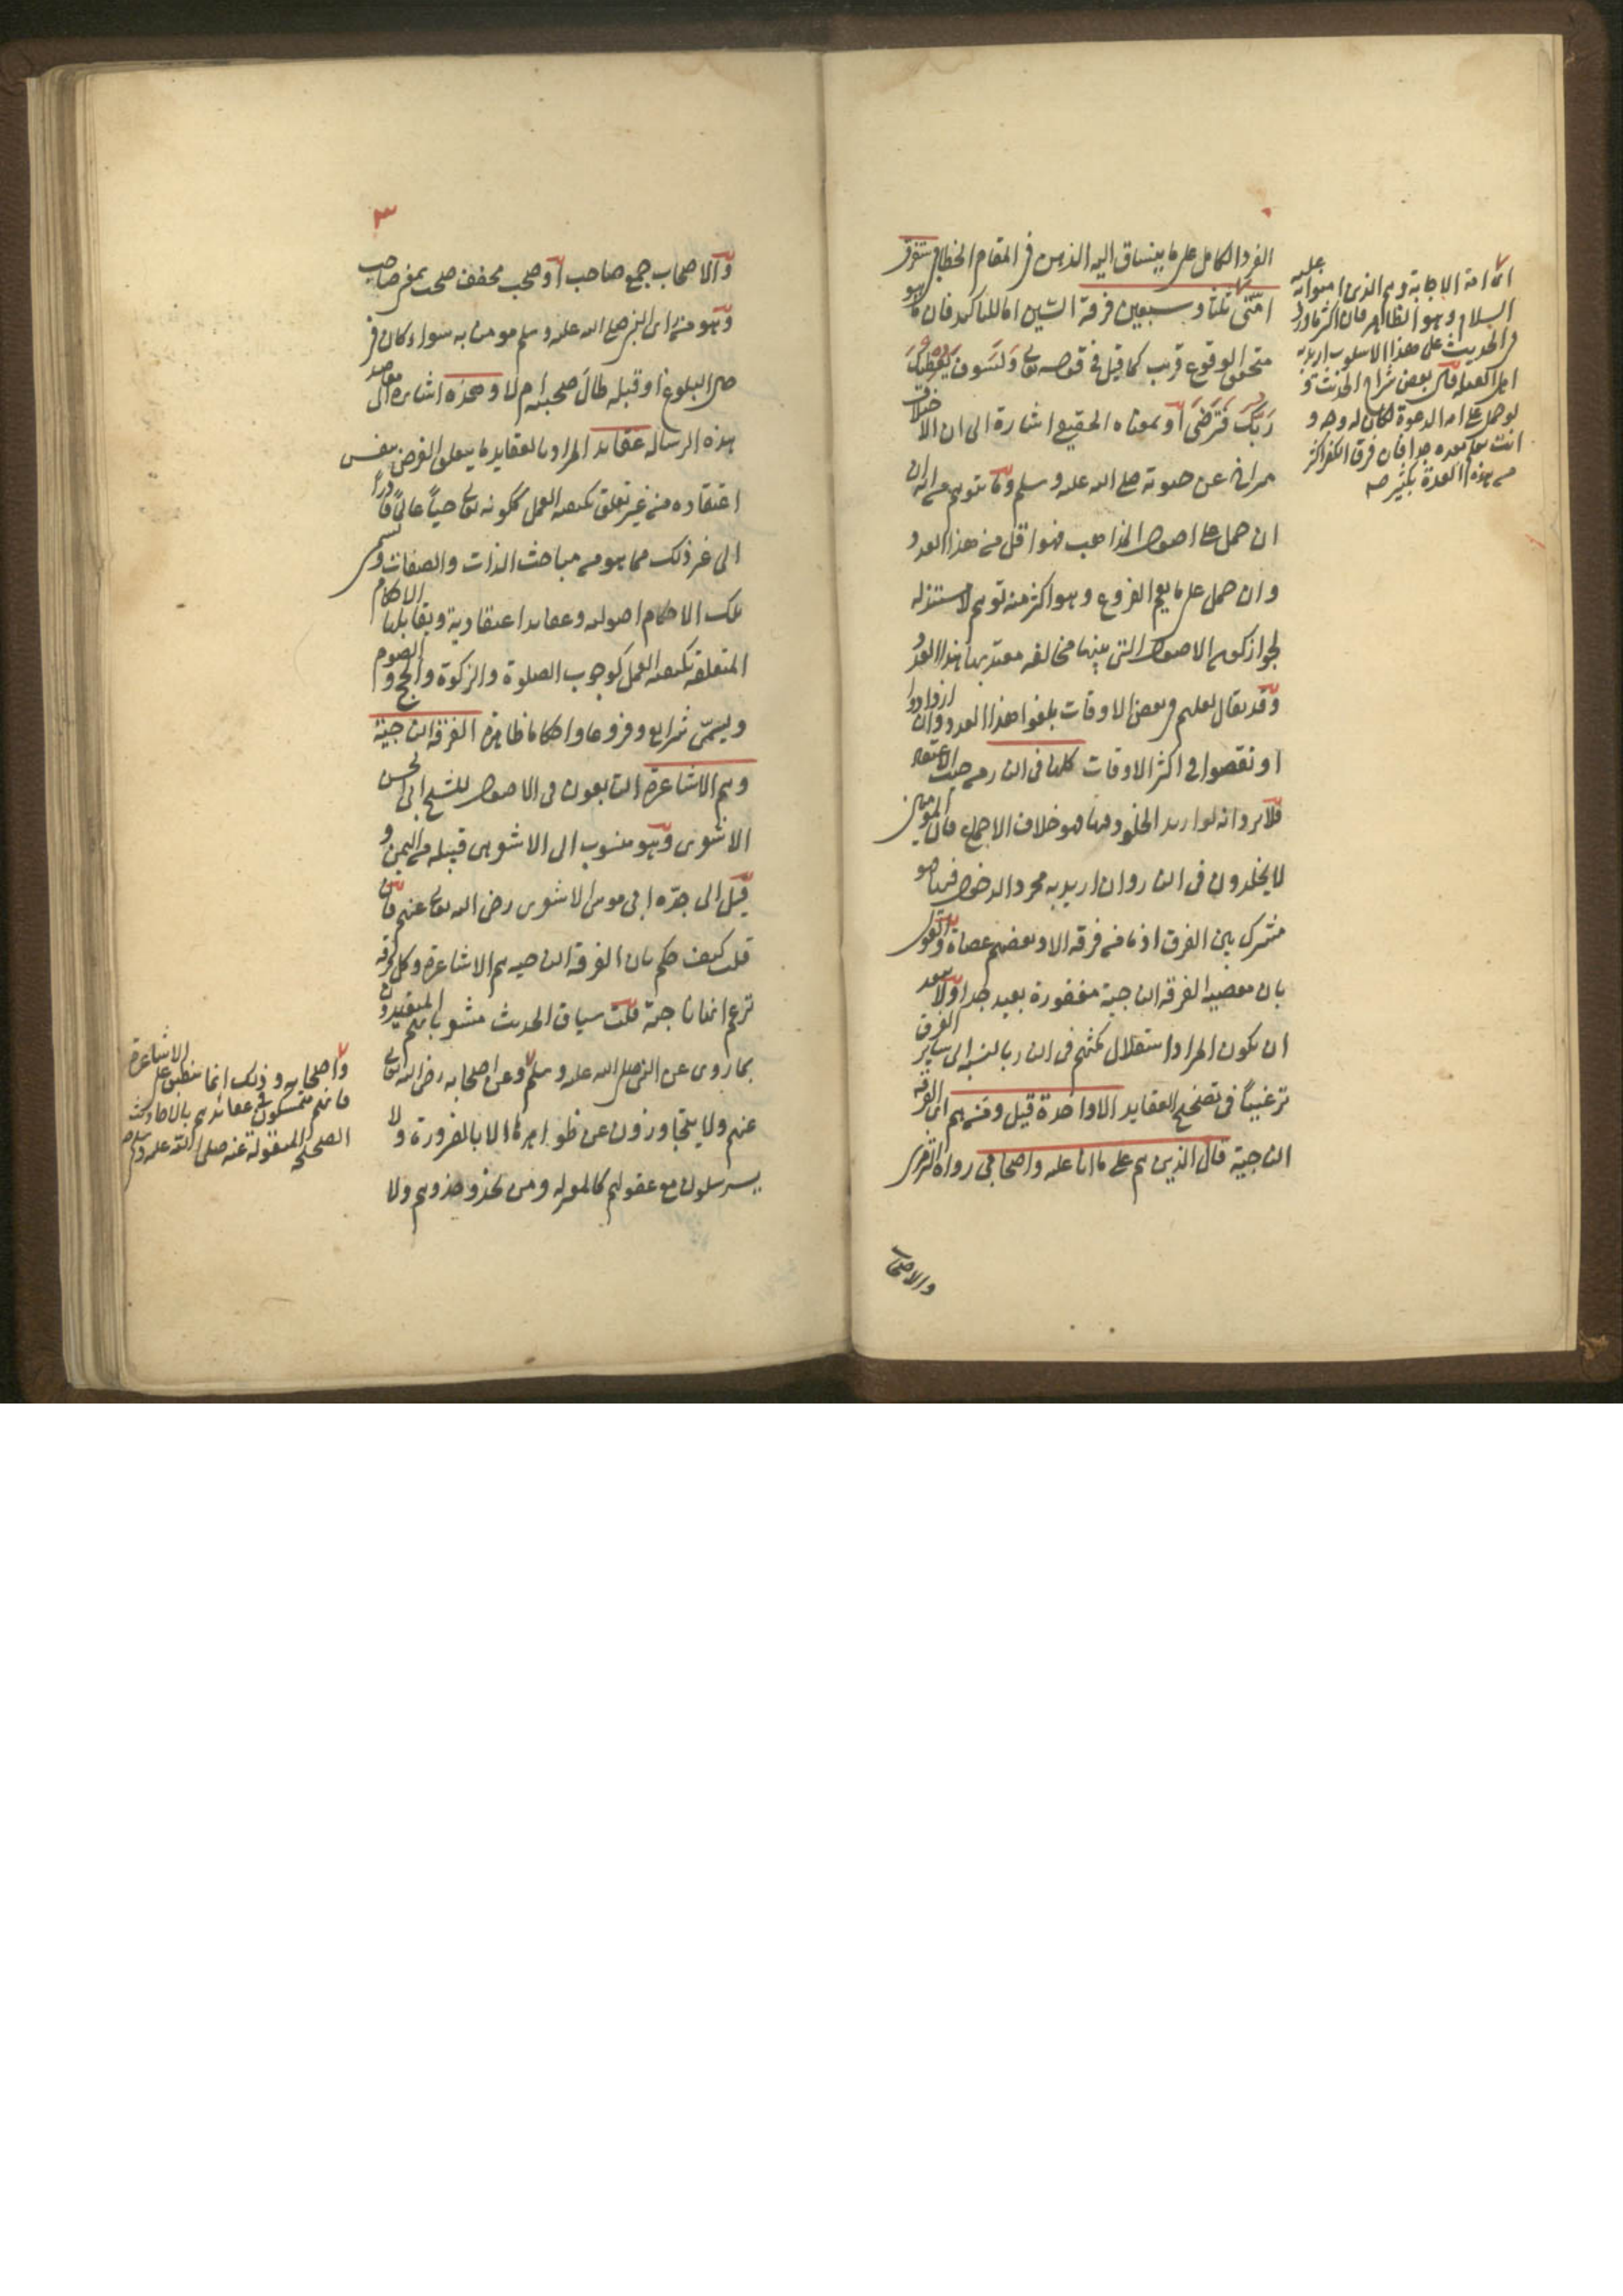 الفرد الكامل على ما ينساق اليه الذهن في المقام الخطابي ستفرق
امّتي ثلثا وسبعين فرقة السين اما للتاكيد فان ما هو
متحقق الوقوع قريب كما قيل في قوله تعالى وَلَسَوفَ يُعْطِيكَ
رَبُّكَ فَتَرْضَى او بمعناه الحقيقي اشارة الى ان الاختلاف
متراخ عن حيوته صلى الله عليه وسلم وما يتوهم من انه ان
ان حمل على اصول المذاهب فهو اقل من هذا العدد
وان حمل على ما يعم الفروع وهو اكثر منه توهم لا مستند له
لجواز كون الاصول التي بينها مخالفة معتد بها هذا العدد
وقد يقال لعلهم في بعض الاوقات بلغوا هذا العدد وان ازدادوا
او نقصوا في اكثر الاوقات كلها في النار من حيث الاعتقاد
فلا يرد انه لو اريد الخلود فيها فهو خلاف الاجماع فان المؤمنين
لا يخلدون في النار وان اريد به مجرد الدخول فيها فهو
مشترك بين الفرق اذ ما من فرقة الا وبعضهم عصاة والقول
بان معصية الفرقة الناجية مغفورة بعيد جدا ولا يبعد
ان يكون المراد استقلال مكثهم في النار بالنسبة الى ساير الفرق
ترغيبا في تصحيح العقايد الا واحدة قيل ومن هم اي الفرقة
الناجية قال الذين هم على ما انا عليه واصحابي رواه الترمذي
والاصحاب
اي امة الاجابة وهم الذين امنوا به عليه
السلام وهو الظاهر فان اكثر ما ورد
في الحديث على هذا الاسلوب اريد به
اهل القبلة قال بعض شراح الحديث و
لو حمل على امة الدعوة لكان له وجه و
انت تعلم بعده جدا فان فرق الكفر اكثر
من هذه العدة بكثير صح
٣
والاصحاب جمع صاحب او صحب مخفف صحب بمعنى صاحب
وهو من اى النبي صلى الله عليه وسلم مومنا به سواء كان في
حال البلوغ او قبله طال صحبته ام لا وهذه اشارة الى مقاصد
هذه الرسالة عقايد المراد بالعقايد ما يتعلق الغرض بنفس
اعتقاده من غير تعلق بكيفية العمل ككونه تعالى حيا عالما قادرا
الى غير ذلك مما هو من مباحث الذات والصفات وتسمى
تلك الاحكام اصولية وعقايد اعتقادية ويقابلها الاحكام
المتعلقة بكيفية العمل كوجوب الصلوة والزكوة والحج والصوم
ويسمى شرايع وفروعا واحكاما ظاهرة الفرقة الناجية
وهم الاشاعرة التابعون في الاصول للشيخ ابي الحسن
الاشعري وهو منسوب الى الاشعر هى قبيلة من اليمن و
قيل الى جدّه ابي موسى الاشعري رضي الله تعالى عنهم فان
قلت كيف حكم بان الفرقة الناجية هم الاشاعرة وكل فرقة
تزعم انها ناجية قلت سياق الحديث مشعر بانهم المعتقدون
بما روى عن النبي صلى الله عليه وسلم وعن اصحابه رضي الله تعالى
عنهم ولا يتجاوزون عن ظواهرها الا بالضرورة ولا
يسترسلون مع عقولهم كالمعتزلة ومن يحذو حذوهم ولا
واصحابه وذلك انما ينطبق على الاشاعرة
فانهم متمسكون في عقائدهم بالاحاديث
الصحيحة المنقولة عنه صلى الله عليه وسلم صح